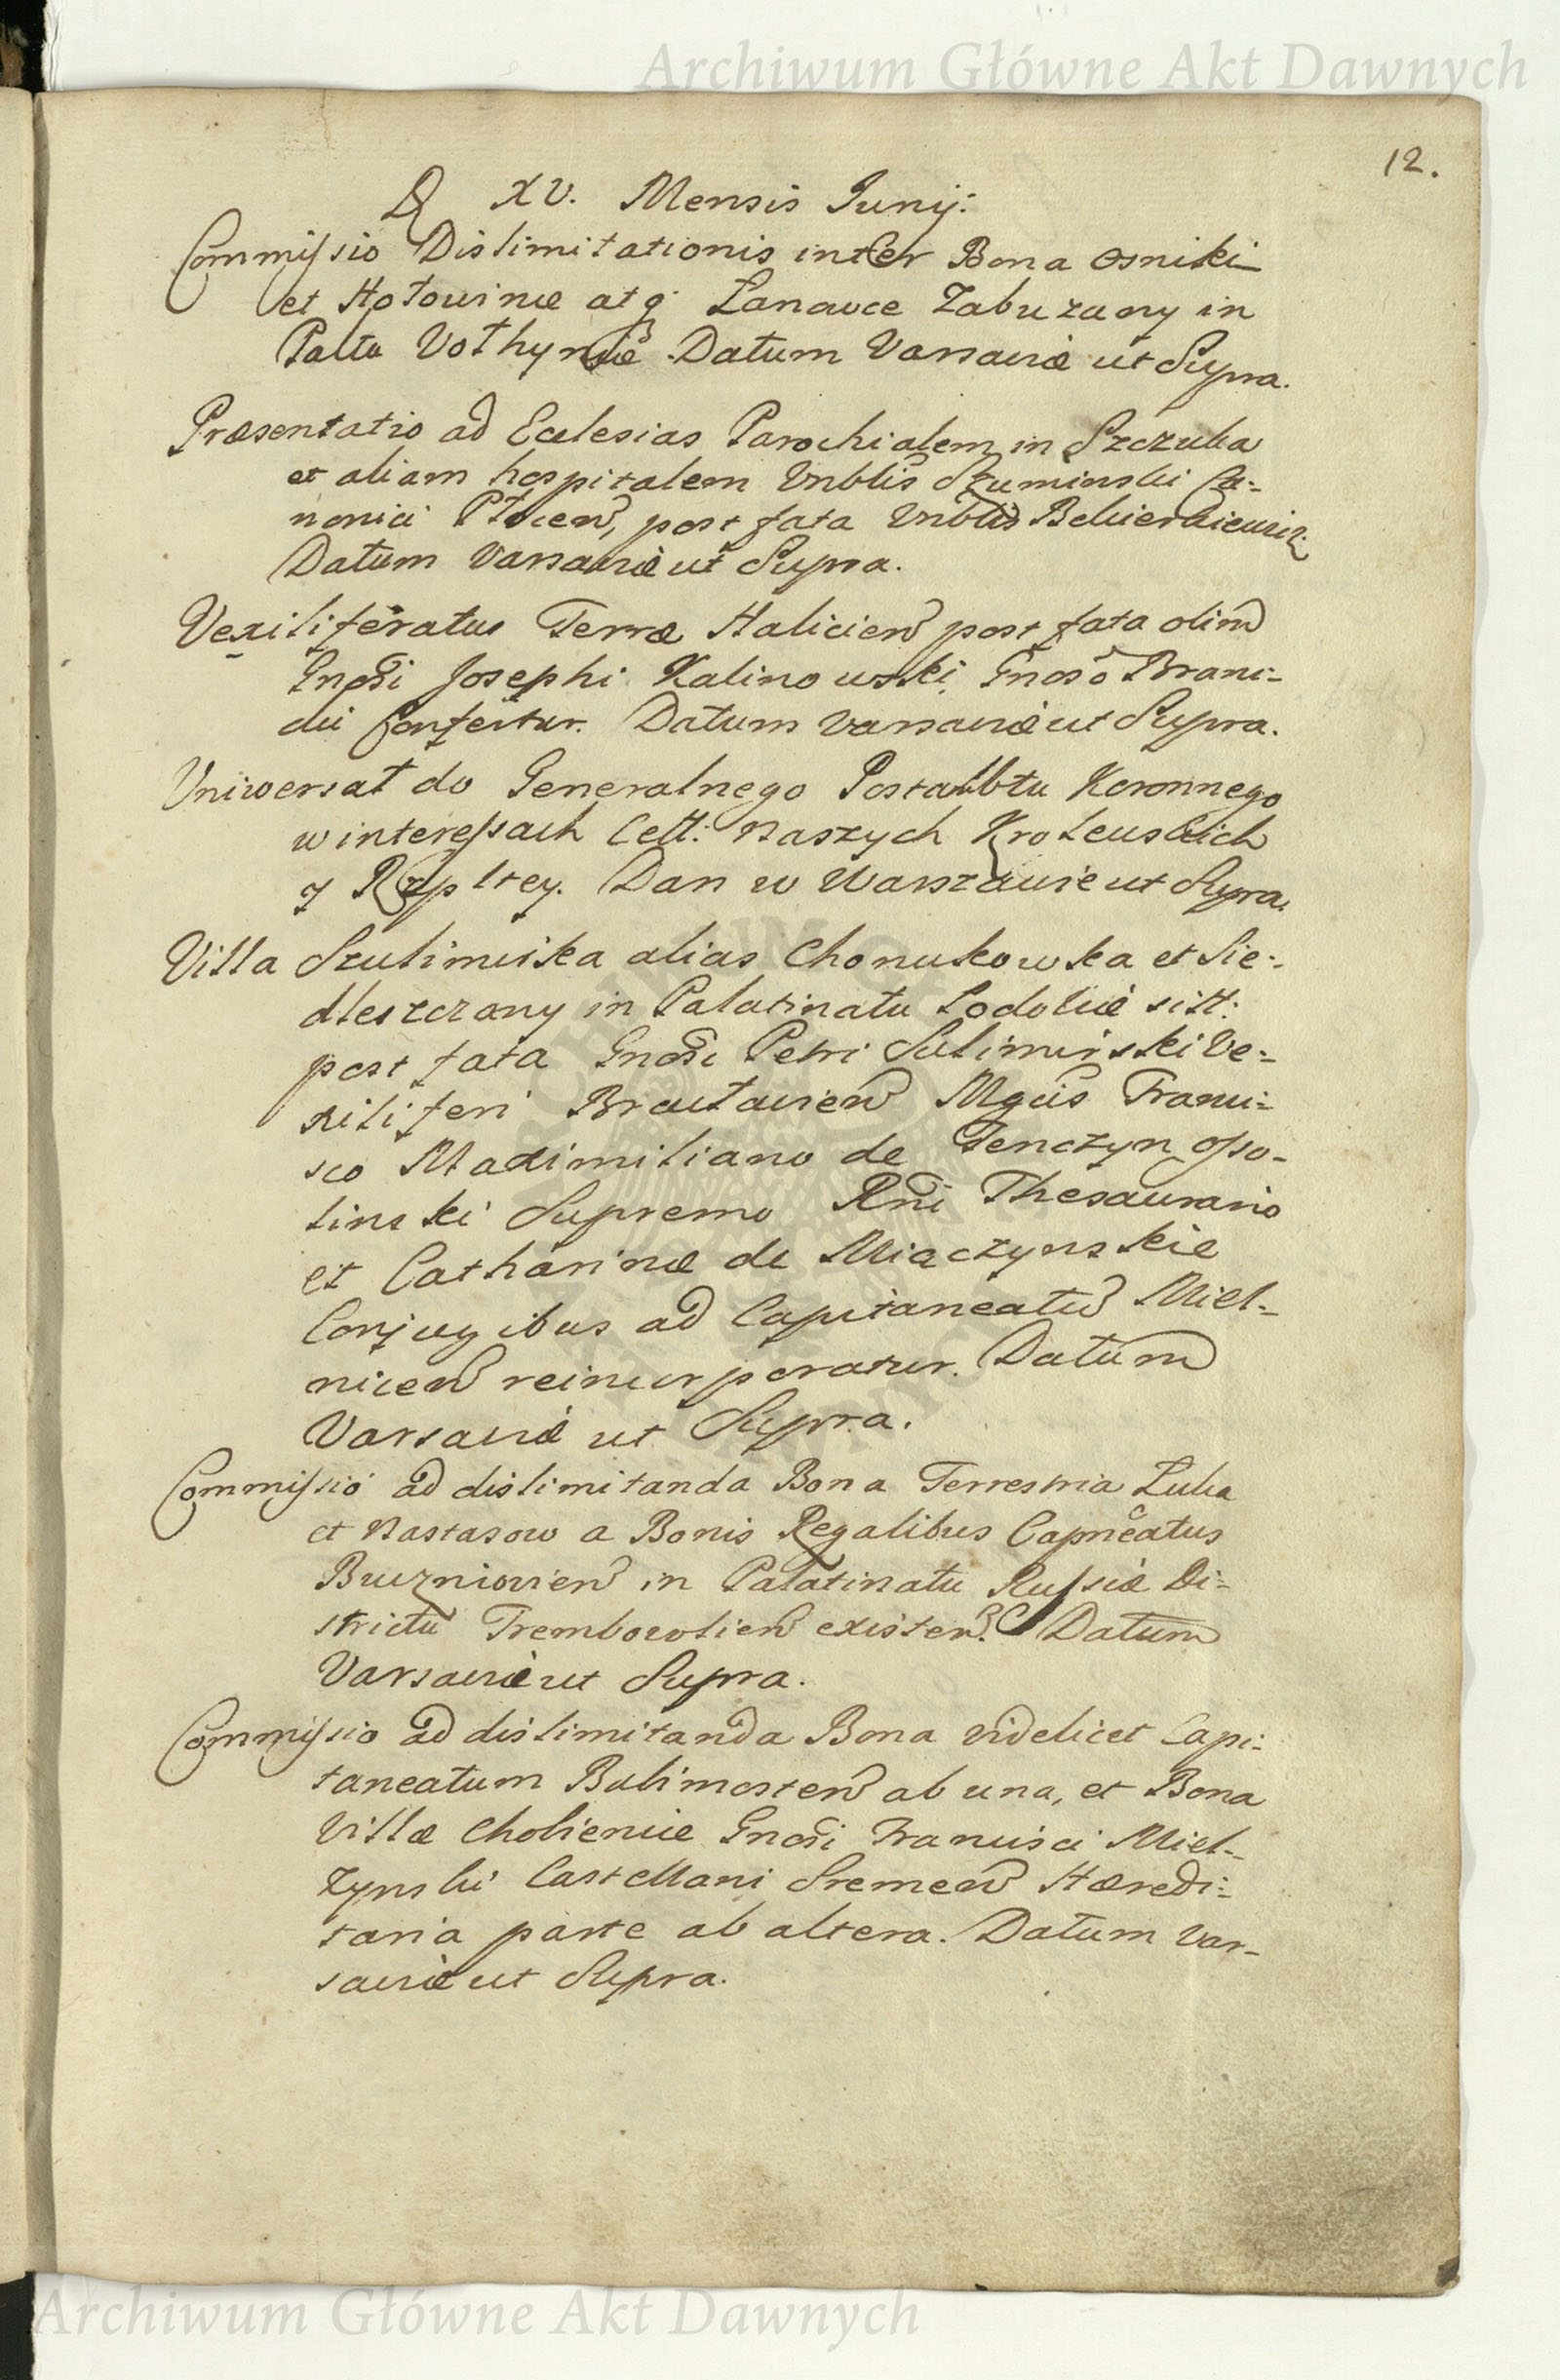 Archiwum Główne Akt Dawnych
12.
D XV. Mensis Junij:
Commissio Dislimitationis inter Bona Osniki
et Hołowinæ atq: Zabuzany in
Paltu Vołhyniæ. Datum Varsaviæ ut Supra.
Præsentatio ad Eclesias Parochialem in Szczuka
et aliam hospitalem Vnblis Szuminski Ca=
nonici Płocen, post fata Vnblis
Datum Varsaviæ ut Supra.
Vexiliferatus Terræ Halicien post fata olim
Gnosi Josephi Kalinowski, Gnoso Brani=
cki Confertur. Datum Varsaviæ ut Supra.
Vniwersał do Generalnego Postalbtu Koronnego
w interessach Cell: Naszych Krolewskich
y Rzpltey. Dan w Warszawie ut Supra.
Villa Szulimiska alias Chonukowska et Sie=
dleszczany in Palatinatu Podoliæ sitt:
post fata Gnosi Petri Sulimirski Ve=
xiliferi Bracłavien Mgcis Franci=
sco Maximiliano de Tenczyn Osso=
linski Supremo Rni Thesaurario
et Catharinæ de Miączynskie
Conjugibus ad Capitaneatu Miel=
nicen reincorporatur. Datum
Varsaviæ ut Supra.
Commissio ad dislimitanda Bona Terrestria Luka
et Nastasow a Bonis Regalibus Capneatus
in Palatinatu Russiæ Di=
strictu Trembowlien existen. Datum
Varsaviæ ut Supra.
Commissio ad dislimitanda Bona videlicet Capi=
taneatum Babimosten ab una, et Bona
Villæ Chobienice Gnosi Francisci Miel=
zynski Castellani Sremen Hæredi=
taria parte ab altera. Datum Var=
saviæ ut Supra.
Archiwum Główne Akt Dawnych